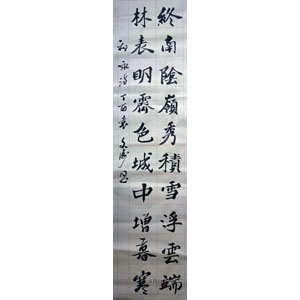 終南陰嶺秀積雪浮雲端
林表明霽色城中增暮寒
祖詠詩丁酉